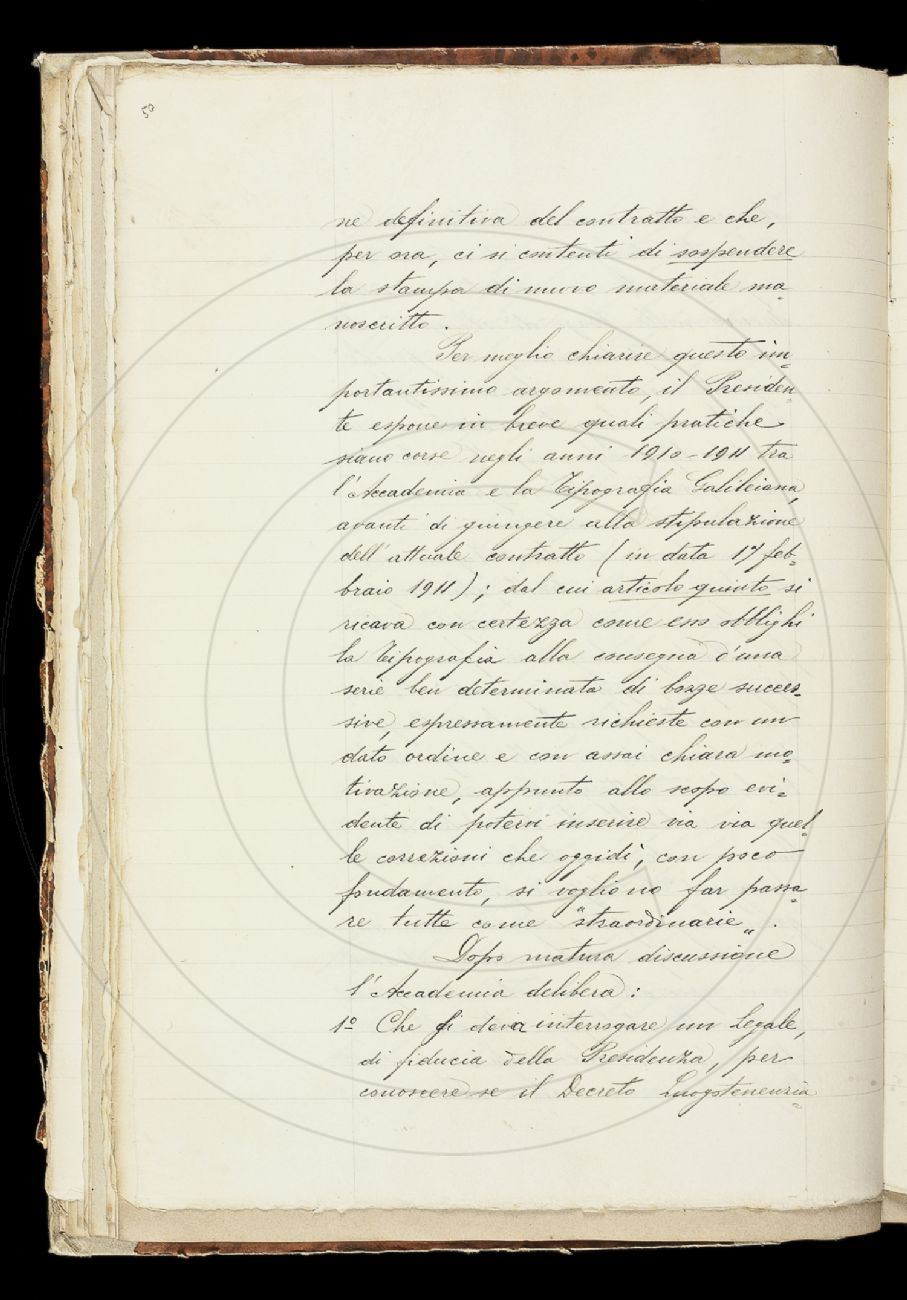 50
ne definitiva del contratto e che,
per ora, ci si contenti di sospendere
la stampa di nuovo materiale ma-
noscritto.
Per meglio chiarire questo im-
portantissimo argomento, il Presiden-
te espone in breve quali pratiche
siano corse negli anni 1910-1911 tra
l'Accademia e la Tipografia Galileiana,
avanti di giungere alla stipulazione
dell'attuale contratto (in data 17 feb-
braio 1911); dal cui articolo quinto si
ricava con certezza come esso obblighi
la Tipografia alla consegna d'una
serie ben determinata di bozze succes-
sive, espressamente richieste con un
dato ordine e con assai chiara mo-
tivazione, appunto allo scopo evi-
dente di potervi inserire via via quel-
le correzioni che oggidì, con poco
fondamento, si vogliono far passa-
re tutte come "straordinarie".
Dopo matura discussione
l'Accademia delibera:
1º Che si deva interrogare un Legale,
di fiducia della Presidenza, per
conoscere se il Decreto Luogotenenzia-